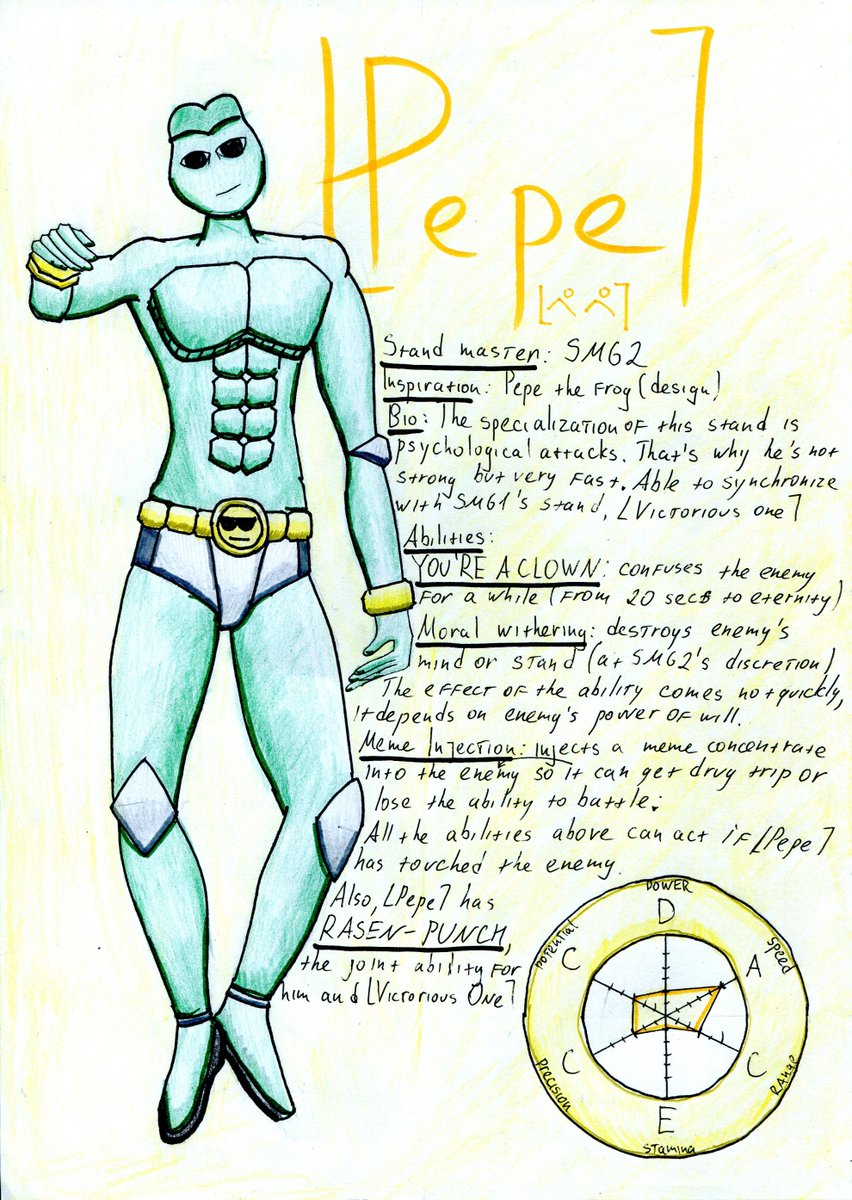 ⌊Pepe⌉
⌊ペペ⌉
Stand master: SMG2
Inspiration: Pepe the Frog (design)
Bio: The specialization of this stand is
psychological attacks. That's why he's not
strong but very fast. Able to synchronize
with SMG1's stand, ⌊Victorious one⌉
Abilities:
YOU'RE A CLOWN: confuses the enemy
for a while (from 20 secs to eternity)
Moral withering: destroys enemy's
mind or stand (at SMG2's discretion)
The effect of the ability comes not quickly,
it depends on enemy's power of will.
Meme Injection: injects a meme concentrate
into the enemy so it can get drug trip or
lose the ability to battle.
All the abilities above can act if ⌊Pepe⌉
has touched the enemy.
Also, ⌊Pepe⌉ has
RASEN-PUNCH,
the joint ability for
him and ⌊Victorious One⌉
POWER
D
speed
A
RANge
C
stamina
E
precision
C
potential
C